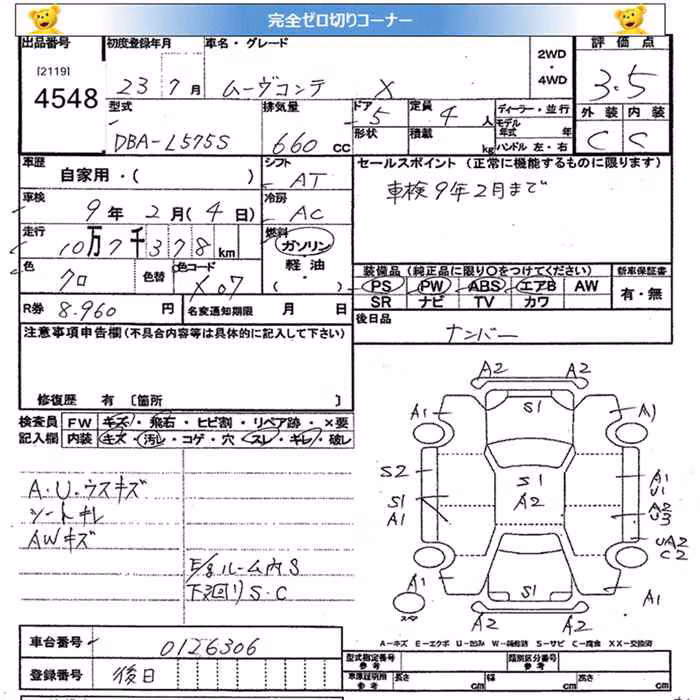 完全ゼロ切りコーナー
出品番号 初度登録年月 車名・グレード 2WD・4WD 評価点
[2119]
4548
23 7月 ムーヴコンテ X 3.5
型式 排気量 ドア 定員 ディーラー・並行 外装 内装
DBA-L575S 660 CC 5 4人 モデル年式 年 C C
形状 積載 kg ハンドル 左・右
車歴 シフト セールスポイント (正常に機能するものに限ります)
自家用・( ) AT 車検9年2月まで
車検 冷房
9年 2月(4日) AC
走行 燃料
10万7千378km ガソリン
軽油
( )
色 色替 色コード 装備品 (純正品に限り〇をつけてください) 新車保証書
クロ X07 PS PW ABS エアB AW 有・無
SR ナビ TV カワ
R券 8.960円 名変通知期限 月 日 後日品
ナンバー
注意事項申告欄(不具合内容等は具体的に記入して下さい)
修復歴 有 [箇所 ]
検査員 FW キズ・飛石・ヒビ割・リペア跡・×要
記入欄 内装 キズ・汚レ・コゲ・穴・スレ・キレ・破レ
A2 A2
S1
A1 A1
S2 S1 A1
U1
A.U.ウスキズ S1 A2 A2
シートキレ A1 U3
AWキズ UA2
C2
E/gルーム内S
下廻りS.C
A1 S1 A1
スペア A2 A2
A-キズ E-エクボ U-凹み W-補修跡 S-サビ C-腐食 XX-交換済
車台番号 0126306
型式指定番号 参考 類別区分番号 参考
登録番号 後日
車庫証明用 参考 長さ cm 幅 cm 高さ cm